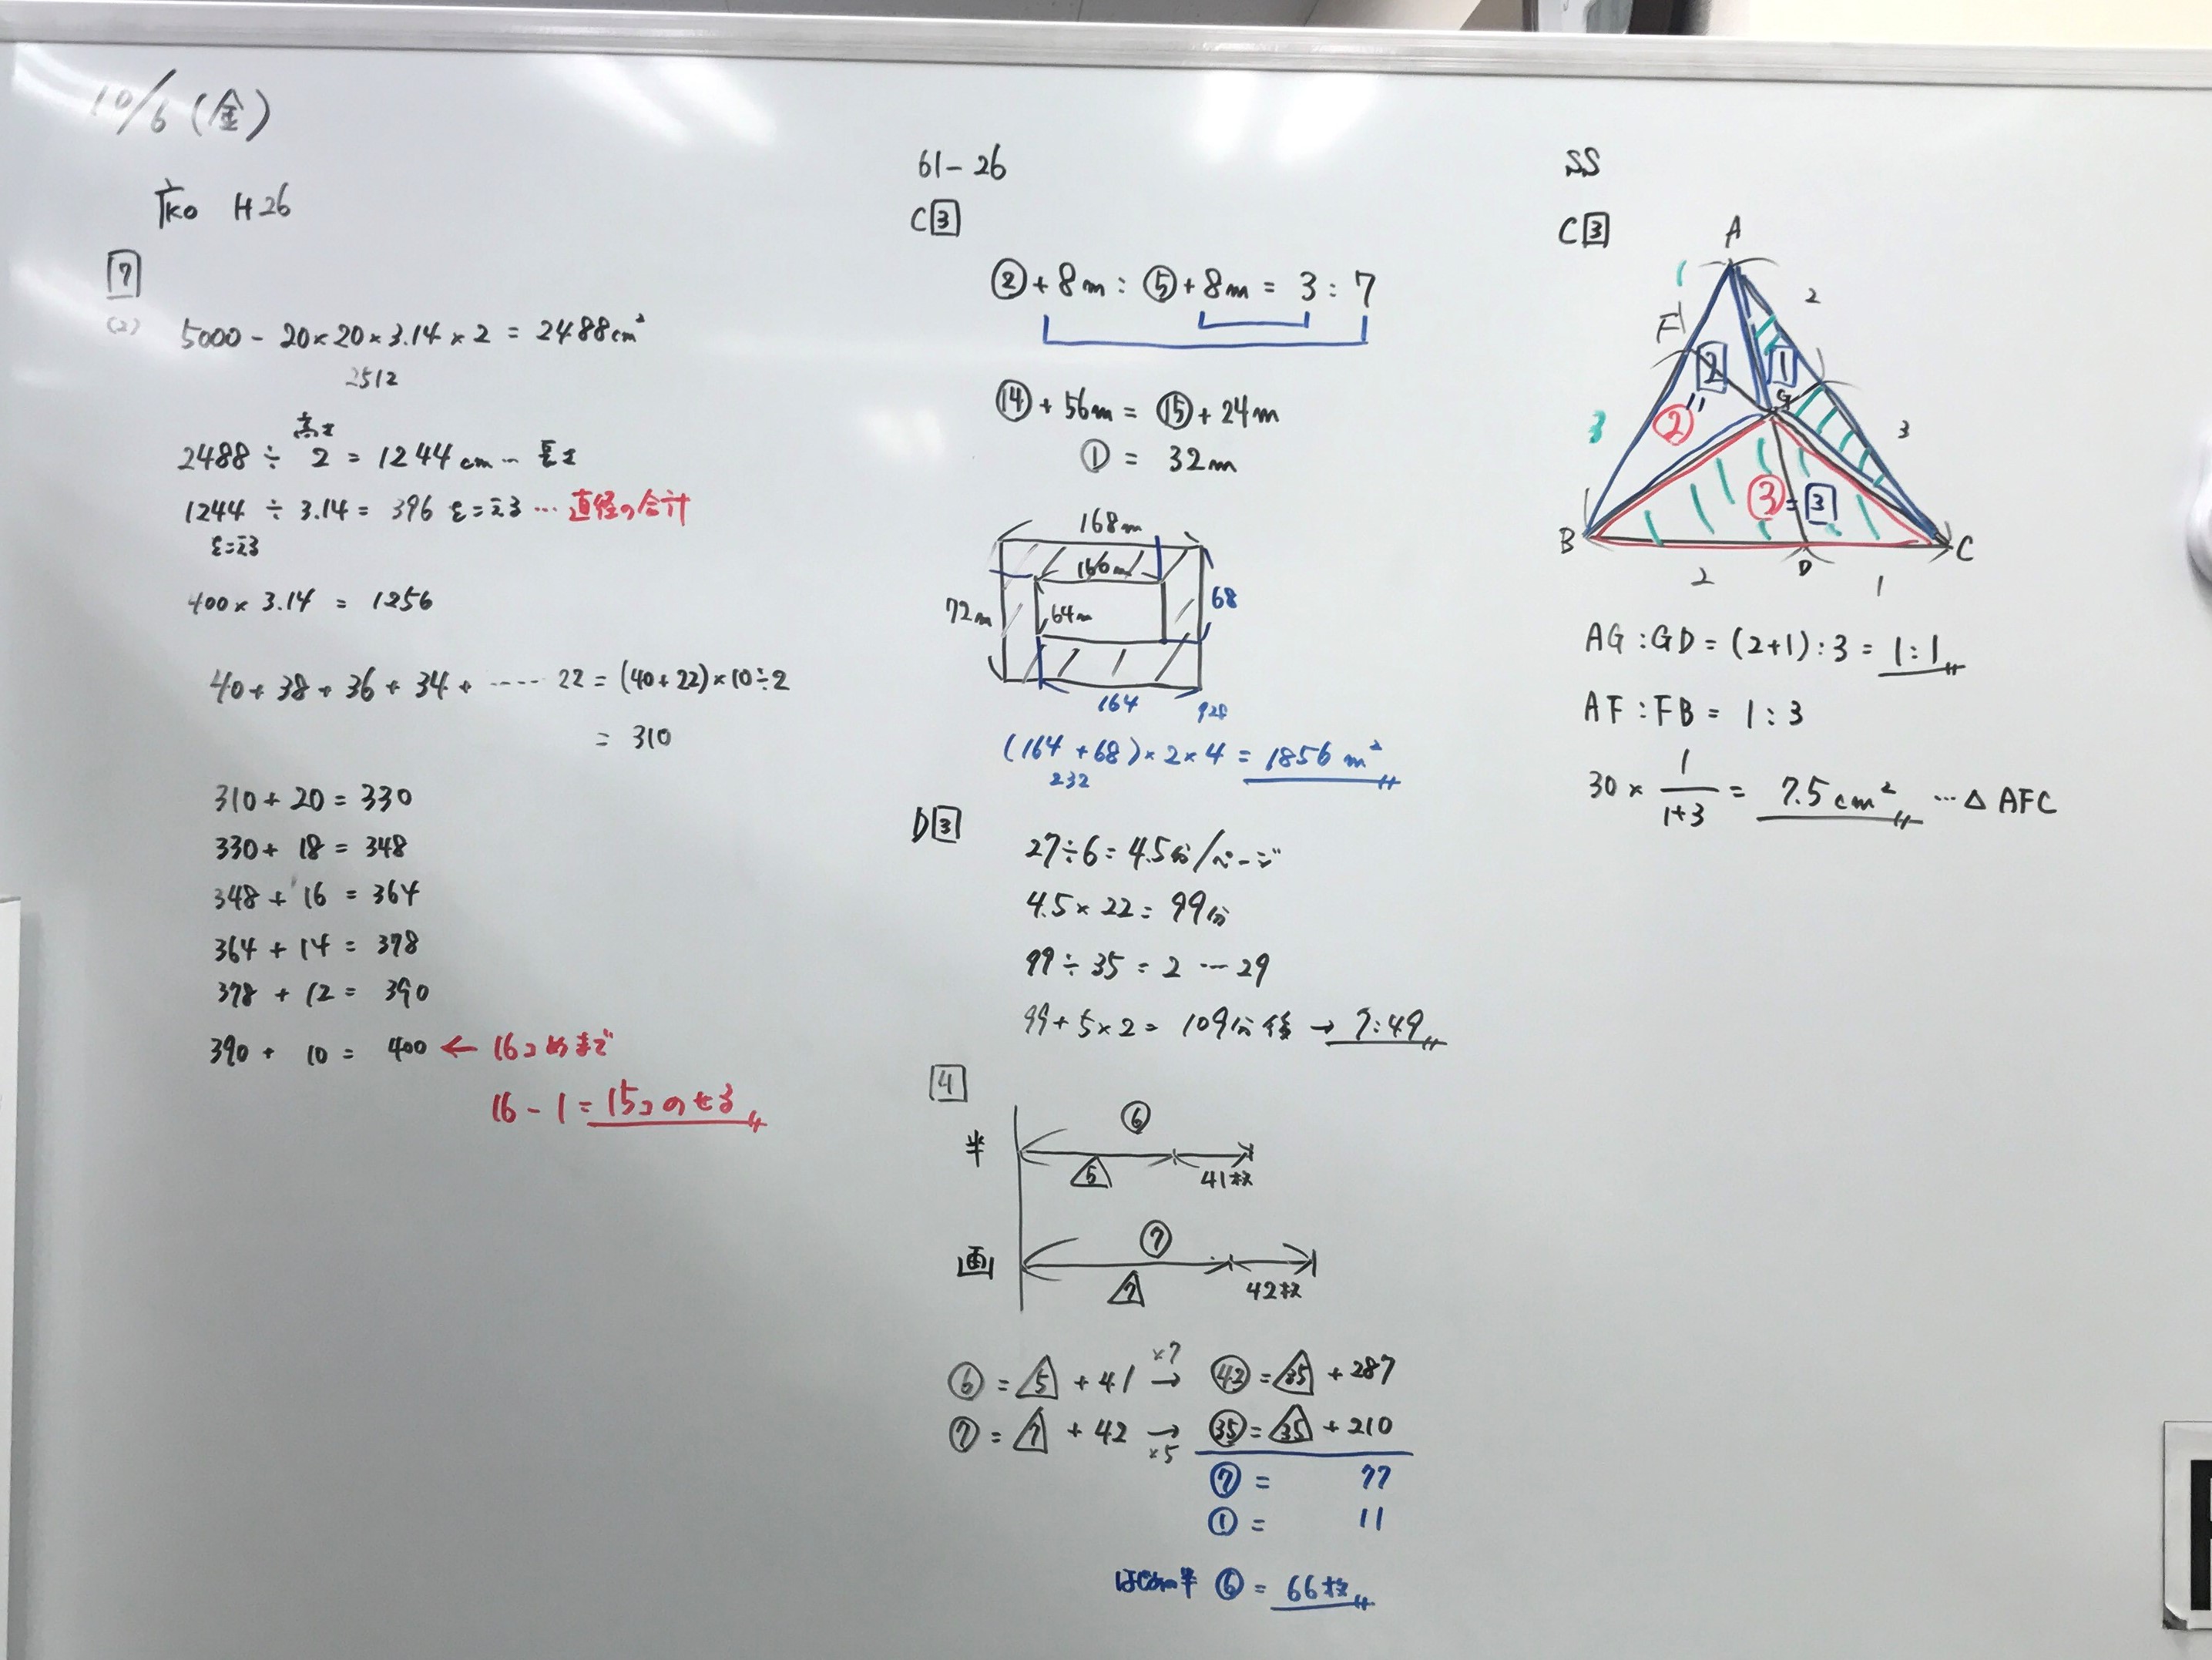 10/6(金)
H26
7
(2)
5000 - 20×20×3.14×2 = 2488cm²
2512
高さ
2488 ÷ 2 = 1244cm … 長さ
1244 ÷ 3.14 = 396 をこえる … 直径の合計
をこえる
400×3.14 = 1256
40+38+36+34+ ····· 22 = (40+22)×10÷2
= 310
310+20=330
330+18=348
348+16=364
364+14=378
378+12=390
390+10=400 ← 16コめまで
16-1=15コのせる
61-26
C3
②+8m:⑤+8m=3:7
⑭+56m=⑮+24m
①=32m
168m
160m
72m
64m
68
164
928
(164+68)×2×4=1856m²
232
D3
27÷6=4.5分/ページ
4.5×22=99分
99÷35=2…29
99+5×2=109分後→7:49
4
半
⑥
5
41枚
画
⑦
7
42枚
⑥=△5+41 ×7→ ㊷=△35+287
⑦=△7+42 →×5 ㉟=△35+210
⑦= 77
①= 11
はじめの半 ⑥=66枚
SS
C3
A
1
2
F
2
1
G
3
②
3
③=3
B
D
C
2
1
AG:GD=(2+1):3=1:1
AF:FB=1:3
30×1/(1+3)=7.5cm² …△AFC